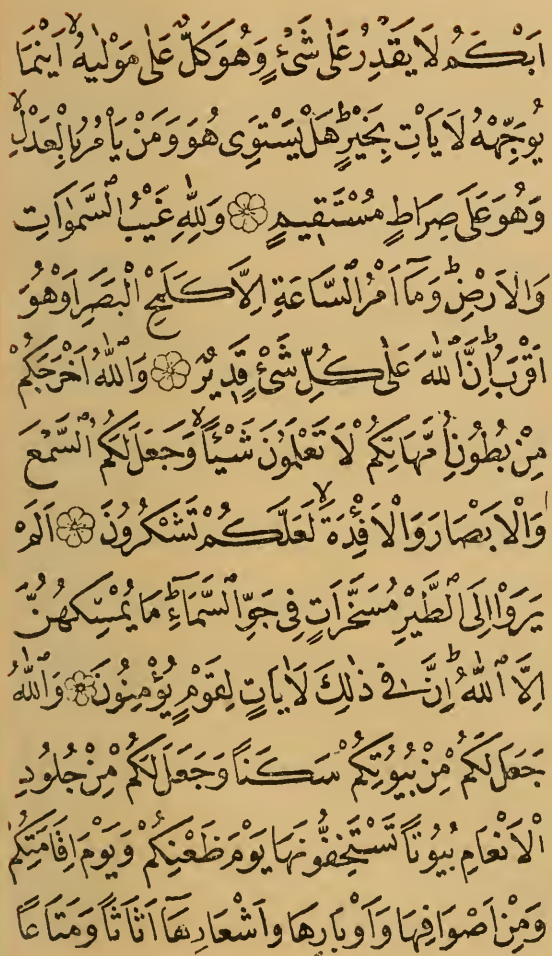 اَبْكَمُ لَا يَقْدِرُ عَلٰى شَىْءٍ وَهُوَ كَلٌّ عَلٰى مَوْلٰيهُ اَيْنَمَا
يُوَجِّهْهُ لَا يَاْتِ بِخَيْرٍ هَلْ يَسْتَوِى هُوَ وَمَنْ يَاْمُرُ بِالْعَدْلِ
وَهُوَ عَلٰى صِرَاطٍ مُسْتَقِيمٍ ۞ وَلِلّٰهِ غَيْبُ السَّمٰوَاتِ
وَالْاَرْضِ وَمَآ اَمْرُ السَّاعَةِ اِلَّا كَلَمْحِ الْبَصَرِ اَوْ هُوَ
اَقْرَبُ اِنَّ اللّٰهَ عَلٰى كُلِّ شَىْءٍ قَدِيرٌ ۞ وَاللّٰهُ اَخْرَجَكُمْ
مِنْ بُطُونِ اُمَّهَاتِكُمْ لَا تَعْلَمُونَ شَيْئًا وَجَعَلَ لَكُمُ السَّمْعَ
وَالْاَبْصَارَ وَالْاَفْئِدَةَ لَعَلَّكُمْ تَشْكُرُونَ ۞ اَلَمْ
يَرَوْا اِلَى الطَّيْرِ مُسَخَّرَاتٍ فِى جَوِّ السَّمَآءِ مَا يُمْسِكُهُنَّ
اِلَّا اللّٰهُ اِنَّ فِى ذٰلِكَ لَاٰيَاتٍ لِقَوْمٍ يُؤْمِنُونَ ۞ وَاللّٰهُ
جَعَلَ لَكُمْ مِنْ بُيُوتِكُمْ سَكَنًا وَجَعَلَ لَكُمْ مِنْ جُلُودِ
الْاَنْعَامِ بُيُوتًا تَسْتَخِفُّونَهَا يَوْمَ ظَعْنِكُمْ وَيَوْمَ اِقَامَتِكُمْ
وَمِنْ اَصْوَافِهَا وَاَوْبَارِهَا وَاَشْعَارِهَآ اَثَاثًا وَمَتَاعًا